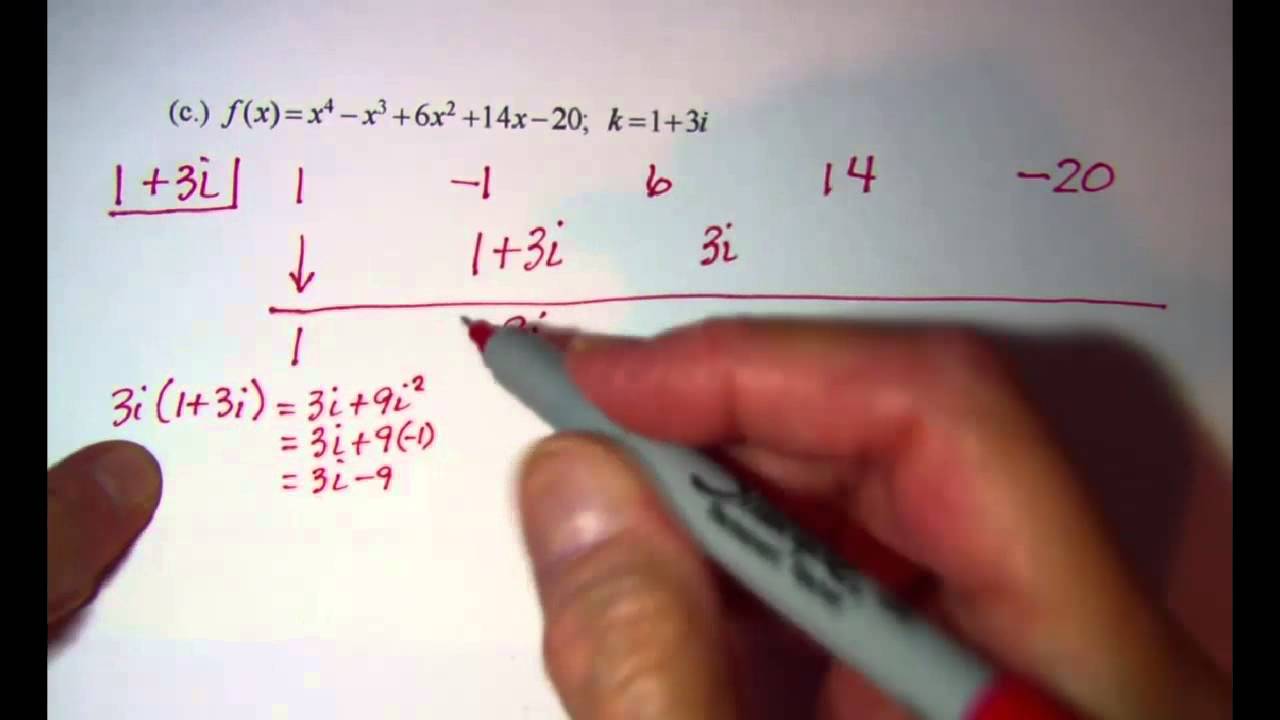 (c.) f(x)=x⁴−x³+6x²+14x−20; k=1+3i
1+3i| 1 −1 6 14 −20
↓ 1+3i 3i
1 3i
3i(1+3i) = 3i+9i²
= 3i+9(-1)
= 3i−9